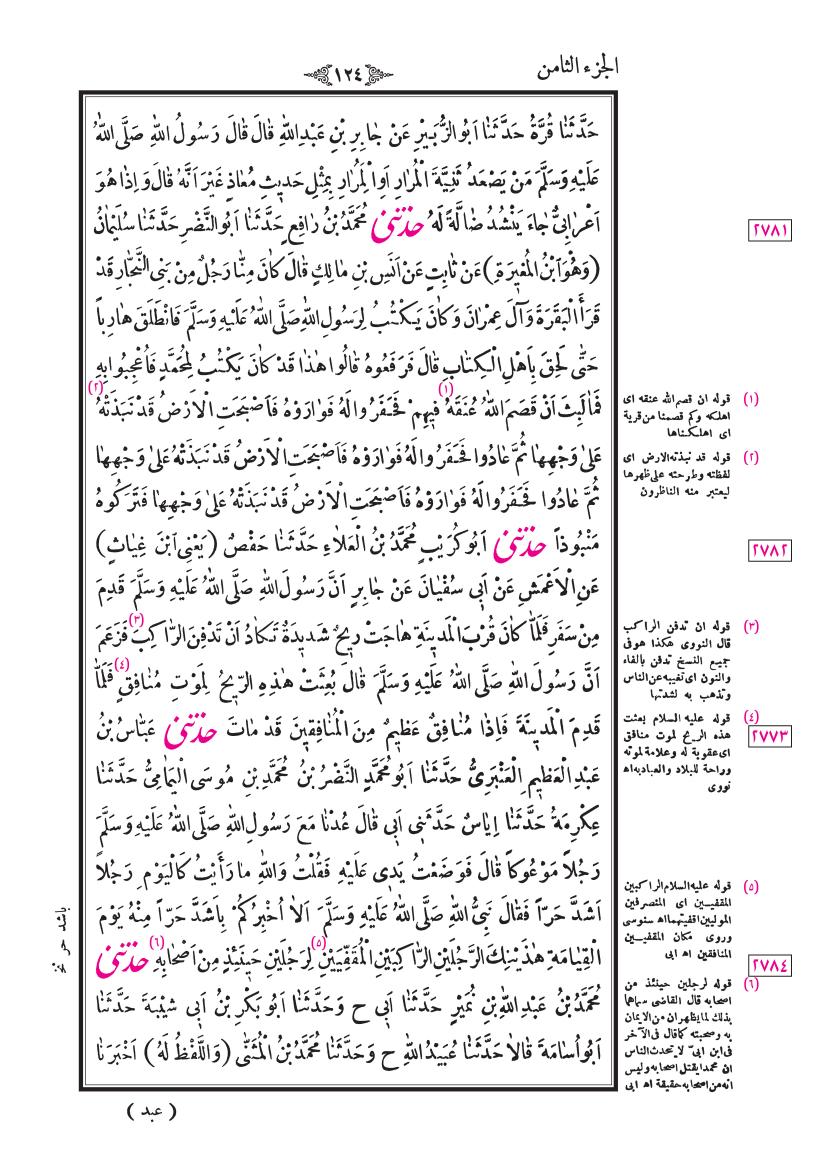 الجزء الثامن
١٢٤
حَدَّثَنَا قُرَّةُ حَدَّثَنَا اَبُوالزُّبَيْرِ عَنْ جَابِرِ بْنِ عَبْدِاللّٰهِ قَالَ قَالَ رَسُولُ اللّٰهِ صَلَّى اللّٰهُ
عَلَيْهِ وَسَلَّمَ مَنْ يَصْعَدُ ثَنِيَّةَ الْمُرَارِ اَوِالْمِرَارِ بِمِثْلِ حَديثِ مُعَاذٍ غَيْرَ اَنَّهُ قَالَ وَاِذَا هُوَ
اَعْرَابِىٌّ جَاءَ يَنْشُدُ ضَالَّةً لَهُ حَدَّثَنِي مُحَمَّدُ بْنُ رَافِعٍ حَدَّثَنَا اَبُو النَّضْرِ حَدَّثَنَا سُلَيْمَانُ
(وَهُوَ ابْنُ الْمُغيرَةِ) عَنْ ثَابِتٍ عَنْ اَنَسِ بْنِ مَالِكٍ قَالَ كَانَ مِنَّا رَجُلٌ مِنْ بَنِى النَّجَّارِ قَدْ
قَرَأَ الْبَقَرَةَ وَآلَ عِمْرَانَ وَكَانَ يَكْتُبُ لِرَسُولِ اللّٰهِ صَلَّى اللّٰهُ عَلَيْهِ وَسَلَّمَ فَانْطَلَقَ هَارِباً
حَتّٰى لَحِقَ بِاَهْلِ الْكِتَابِ قَالَ فَرَفَعُوهُ قَالُوا هٰذَا قَدْ كَانَ يَكْتُبُ لِمُحَمَّدٍ فَاُعْجِبُوا بِهِ
فَمَا لَبِثَ اَنْ قَصَمَ اللّٰهُ عُنُقَهُ (١) فِيهِمْ فَحَفَرُوا لَهُ فَوَارَوْهُ فَاَصْبَحَتِ الْاَرْضُ قَدْ نَبَذَتْهُ (٢)
عَلىٰ وَجْهِهَا ثُمَّ عَادُوا فَحَفَرُوا لَهُ فَوَارَوْهُ فَاَصْبَحَتِ الْاَرْضُ قَدْ نَبَذَتْهُ عَلىٰ وَجْهِهَا
ثُمَّ عَادُوا فَحَفَرُوا لَهُ فَوَارَوْهُ فَاَصْبَحَتِ الْاَرْضُ قَدْ نَبَذَتْهُ عَلىٰ وَجْهِهَا فَتَرَكُوهُ
مَنْبُوذاً حَدَّثَنِي اَبُو كُرَيْبٍ مُحَمَّدُ بْنُ الْعَلَاءِ حَدَّثَنَا حَفْصٌ (يَعْنِى ابْنَ غِيَاثٍ)
عَنِ الْاَعْمَشِ عَنْ اَبى سُفْيَانَ عَنْ جَابِرٍ اَنَّ رَسُولَ اللّٰهِ صَلَّى اللّٰهُ عَلَيْهِ وَسَلَّمَ قَدِمَ
مِنْ سَفَرٍ فَلَمَّا كَانَ قُرْبَ الْمَدينَةِ هَاجَتْ ريحٌ شَديدَةٌ تَكَادُ اَنْ تَدْفِنَ الرَّاكِبَ (٣) فَزَعَمَ
اَنَّ رَسُولَ اللّٰهِ صَلَّى اللّٰهُ عَلَيْهِ وَسَلَّمَ قَالَ بُعِثَتْ هٰذِهِ الرّيحُ لِمَوْتِ مُنَافِقٍ (٤) فَلَمَّا
قَدِمَ الْمَدينَةَ فَاِذَا مُنَافِقٌ عَظيمٌ مِنَ الْمُنَافِقينَ قَدْ مَاتَ حَدَّثَنِي عَبَّاسُ بْنُ
عَبْدِ الْعَظيمِ الْعَنْبَرِىُّ حَدَّثَنَا اَبُو مُحَمَّدٍ النَّضْرُ بْنُ مُحَمَّدِ بْنِ مُوسَى الْيَمَامِىُّ حَدَّثَنَا
عِكْرِمَةُ حَدَّثَنَا اِيَاسٌ حَدَّثَنى اَبى قَالَ عُدْنَا مَعَ رَسُولِ اللّٰهِ صَلَّى اللّٰهُ عَلَيْهِ وَسَلَّمَ
رَجُلاً مَوْعُوكاً قَالَ فَوَضَعْتُ يَدى عَلَيْهِ فَقُلْتُ وَاللّٰهِ مَا رَأَيْتُ كَالْيَوْمِ رَجُلاً
اَشَدَّ حَرّاً فَقَالَ نَبِىُّ اللّٰهِ صَلَّى اللّٰهُ عَلَيْهِ وَسَلَّمَ اَلاٰ اُخْبِرُكُمْ بِاَشَدَّ حَرّاً مِنْهُ يَوْمَ
الْقِيَامَةِ هٰذَيْنِكَ الرَّجُلَيْنِ الرَّاكِبَيْنِ الْمُقَفِّيَيْنِ (٥) لِرَجُلَيْنِ حينَئِذٍ مِنْ اَصْحَابِهِ (٦) حَدَّثَنِي
مُحَمَّدُ بْنُ عَبْدِ اللّٰهِ بْنِ نُمَيْرٍ حَدَّثَنَا اَبى ح وَحَدَّثَنَا اَبُو بَكْرِ بْنُ اَبى شَيْبَةَ حَدَّثَنَا
اَبُو اُسَامَةَ قَالَا حَدَّثَنَا عُبَيْدُ اللّٰهِ ح وَحَدَّثَنَا مُحَمَّدُ بْنُ الْمُثَنّٰى (وَاللَّفْظُ لَهُ) اَخْبَرَنَا
( عبد )
٢٧٨١
(١) قوله ان قصم الله عنقه اى
اهلكه وكم قصمنا من قرية
اى اهلكناها
(٢) قوله قد نبذته الارض اى
لفظته وطرحته على ظهرها
ليعتبر منه الناظرون
٢٧٨٢
(٣) قوله ان تدفن الراكب
قال النووى هكذا هو فى
جميع النسخ تدفن بالفاء
والنون اى تغيبه عن الناس
وتذهب به لشدتها
(٤) قوله عليه السلام بعثت
هذه الريح لموت منافق
اى عقوبة له وعلامة لموته
وراحة للبلاد والعباد به اه
نووى
٢٧٧٣
(٥) قوله عليه السلام الراكبين
المقفيين اى المنصرفين
الموليين اقفيتهما اه سنوسى
وروى مكان المقفيين
المنافقين اه ابى
٢٧٨٤
(٦) قوله لرجلين حينئذ من
اصحابه قال القاضى سماهما
بذلك لما يظهران من الايمان
به وصحبته كما قال فى الآخر
فى ابن ابىّ لا يتحدث الناس
ان محمدا يقتل اصحابه وليس
انه من اصحابه حقيقة اه ابى
باشد حر نخ